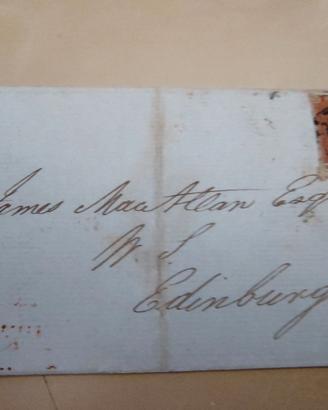 James MacAllan Esq
W. S.
Edinburg